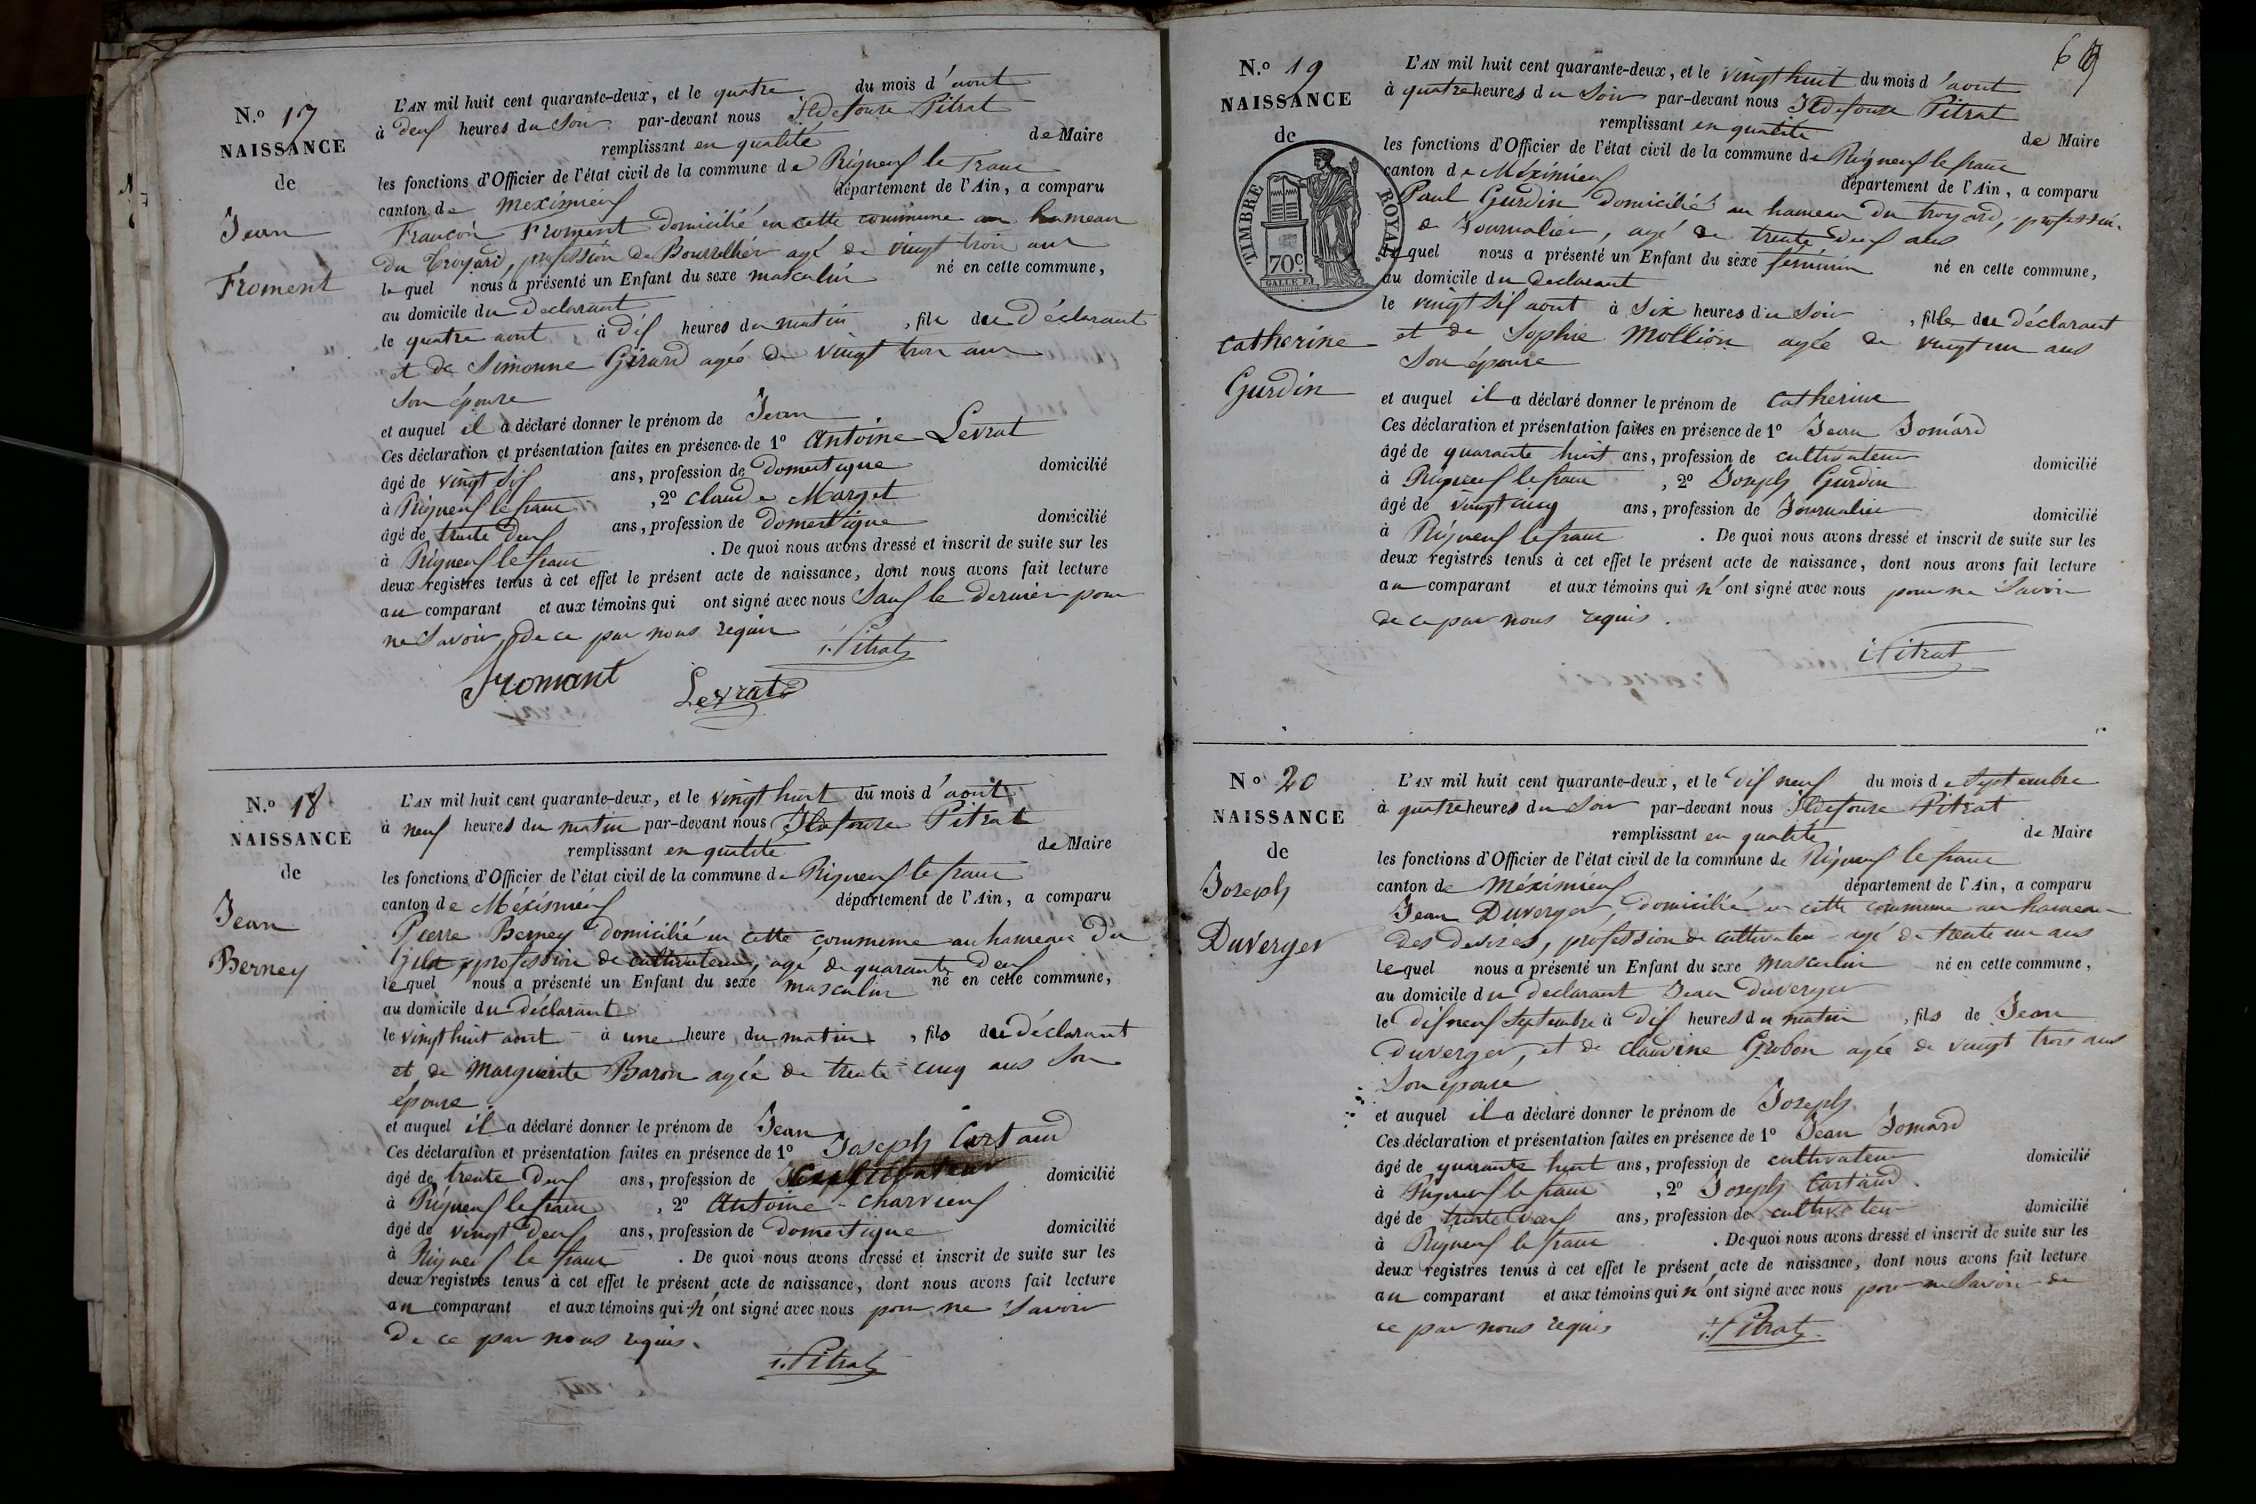 N.o 17
NAISSANCE
de
Jean
Froment
L'AN mil huit cent quarante-deux, et le quatre du mois d'aout
à deux heures du Soir par-devant nous Ildefonse Pitrat
remplissant en qualité de Maire
les fonctions d'Officier de l'état civil de la commune de Rigneux le franc
canton de Meximieux département de l'Ain, a comparu
François Froment domicilié en cette commune au hameau
du Troyard, profession de Bourellier agé de vingt trois ans
lequel nous a présenté un Enfant du sexe masculin né en cette commune,
au domicile du Declarant
le quatre aout à dix heures du matin, fils du Déclarant
et de Simonne Girard agée de vingt trois ans
Son épouse
et auquel il a déclaré donner le prénom de Jean
Ces déclaration et présentation faites en présence de 1o Antoine Levrat
âgé de vingt six ans, profession de Domestique domicilié
à Rigneux le franc, 2o Claude Marget
âgé de trente deux ans, profession de Domestique domicilié
à Rigneux le franc. De quoi nous avons dressé et inscrit de suite sur les
deux registres tenus à cet effet le présent acte de naissance, dont nous avons fait lecture
au comparant et aux témoins qui ont signé avec nous Sauf le dernier pour
ne Savoir, de ce par nous requis i. Pitrat
Fromant Levrat
N.o 18
NAISSANCE
de
Jean
Berney
L'AN mil huit cent quarante-deux, et le vingt huit du mois d'aout
à neuf heures du matin par-devant nous Ildefonse Pitrat
remplissant en qualité de Maire
les fonctions d'Officier de l'état civil de la commune de Rigneux le franc
canton de Méximieux département de l'Ain, a comparu
Pierre Berney domicilié en cette commune au hameau du
profession de cultivateur, agé de quarante deux
lequel nous a présenté un Enfant du sexe masculin né en cette commune,
au domicile du déclarant
le vingt huit aout à une heure du matin, fils du déclarant
et de Marguerite Baron agée de trente cinq ans Son
épouse
et auquel il a déclaré donner le prénom de Jean
Ces déclaration et présentation faites en présence de 1o Joseph Cartaud
âgé de trente deux ans, profession de cultivateur domicilié
à Rigneux le franc, 2o Antoine Charvieux
âgé de vingt deux ans, profession de Domestique domicilié
à Rigneux le franc. De quoi nous avons dressé et inscrit de suite sur les
deux registres tenus à cet effet le présent acte de naissance, dont nous avons fait lecture
au comparant et aux témoins qui n'ont signé avec nous pour ne Savoir
De ce par nous requis.
i. Pitrat
N.o 19
NAISSANCE
de
TIMBRE ROYAL.
70c
Catherine
Gurdin
L'AN mil huit cent quarante-deux, et le vingt huit du mois d'aout
à quatre heures du Soir par-devant nous Ildefonse Pitrat
remplissant en qualité de Maire
les fonctions d'Officier de l'état civil de la commune de Rigneux le franc
canton de Méximieux département de l'Ain, a comparu
Paul Gurdin domicilié au hameau du troyard, profession
de Journalier, agé de trente deux ans
lequel nous a présenté un Enfant du sexe féminin né en cette commune,
au domicile du declarant
le vingt six aout à Six heures du Soir, fille du déclarant
et de Sophie Mollion agée de vingt un ans
Son épouse
et auquel il a déclaré donner le prénom de Catherine
Ces déclaration et présentation faites en présence de 1o Jean Jomard
âgé de quarante huit ans, profession de cultivateur domicilié
à Rigneux le franc, 2o Joseph Gurdin
âgé de vingt cinq ans, profession de Journalier domicilié
à Rigneux le franc. De quoi nous avons dressé et inscrit de suite sur les
deux registres tenus à cet effet le présent acte de naissance, dont nous avons fait lecture
au comparant et aux témoins qui n'ont signé avec nous pour ne Savoir
de ce par nous requis.
i Pitrat
No 20
NAISSANCE
de
Joseph
Duverger
L'AN mil huit cent quarante-deux, et le dix neuf du mois de Septembre
à quatre heures du Soir par-devant nous Ildefonse Pitrat
remplissant en qualité de Maire
les fonctions d'Officier de l'état civil de la commune de Rigneux le franc
canton de Méximieux département de l'Ain, a comparu
Jean Duverger, domicilié en cette commune au hameau
des profession de cultivateur agé de trente un ans
lequel nous a présenté un Enfant du sexe Masculin né en cette commune,
au domicile du declarant Jean Duverger
le dix neuf Septembre à Dix heures du matin, fils de Jean
Duverger, et de Claudine Grobon agée de vingt trois ans
Son épouse
et auquel il a déclaré donner le prénom de Joseph
Ces déclaration et présentation faites en présence de 1o Jean Jomard
âgé de quarante huit ans, profession de cultivateur domicilié
à Rigneux le franc, 2o Joseph Cartaud.
âgé de trente deux ans, profession de cultivateur domicilié
à Rigneux le franc. De quoi nous avons dressé et inscrit de suite sur les
deux registres tenus à cet effet le présent acte de naissance, dont nous avons fait lecture
au comparant et aux témoins qui n'ont signé avec nous pour ne Savoir de
ce par nous requis i. Pitrat